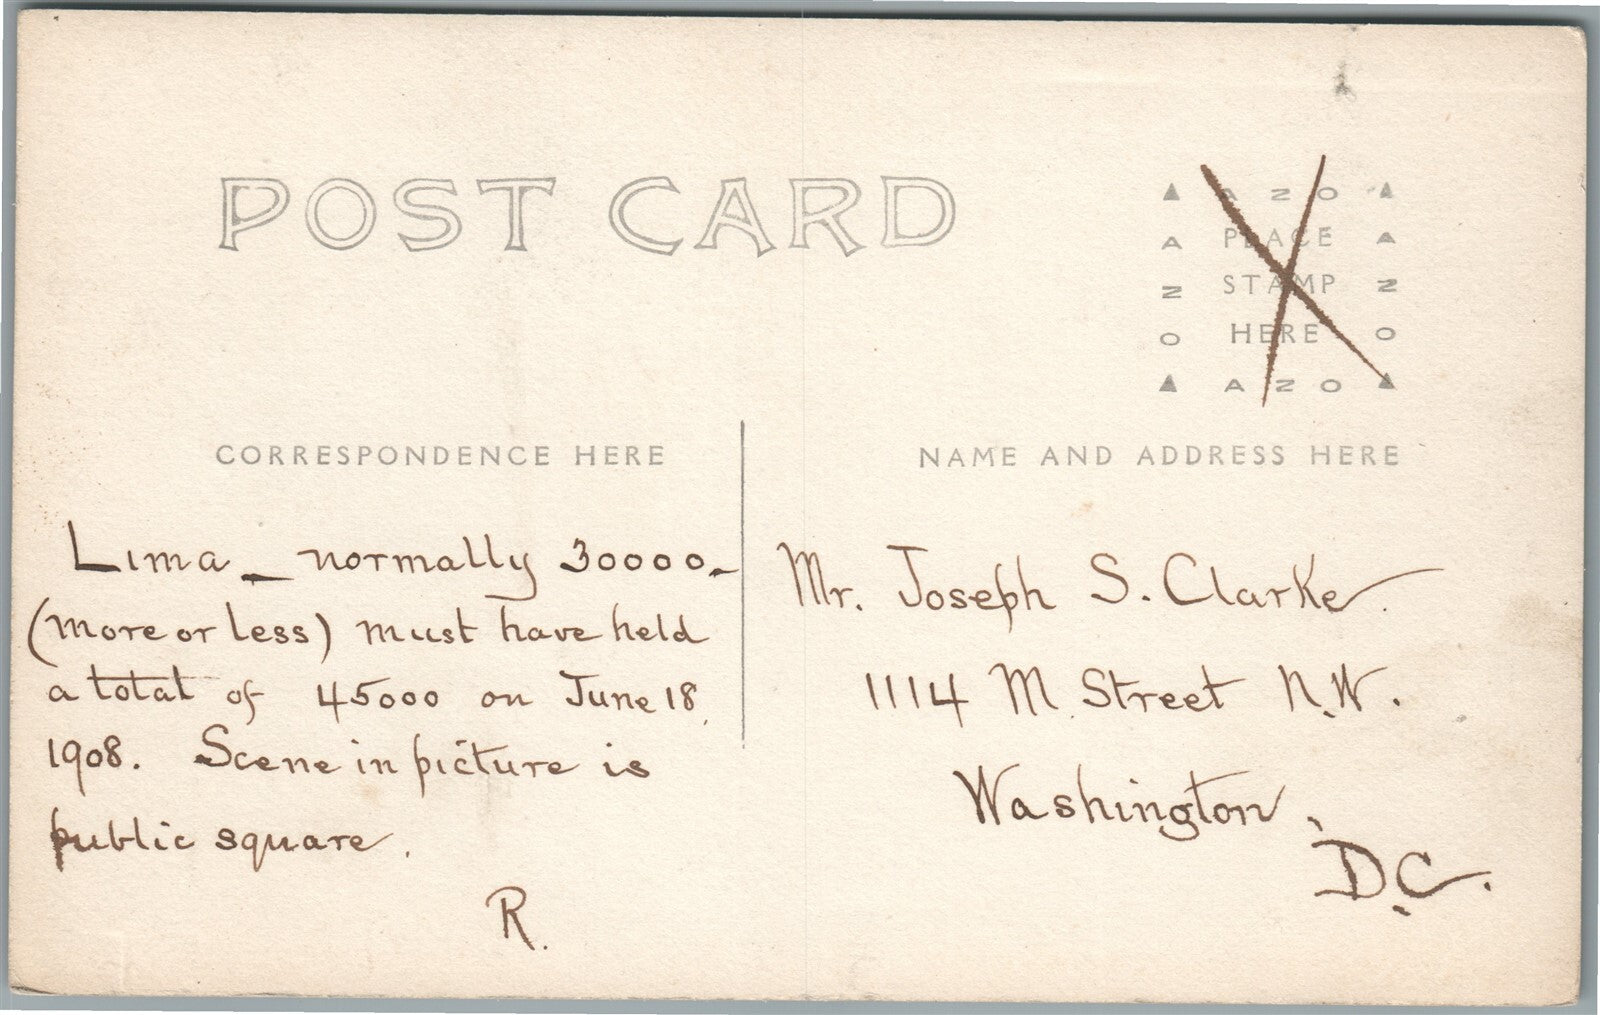 POST CARD
▲ AZO ▲
A PLACE A
N STAMP N
O HERE O
▲ AZO ▲
CORRESPONDENCE HERE
NAME AND ADDRESS HERE
Lima _ normally 30000 _
(more or less) must have held
a total of 45000 on June 18,
1908. Scene in picture is
public square.
R.
Mr. Joseph S. Clarke.
1114 M. Street N.W.
Washington,
D.C.